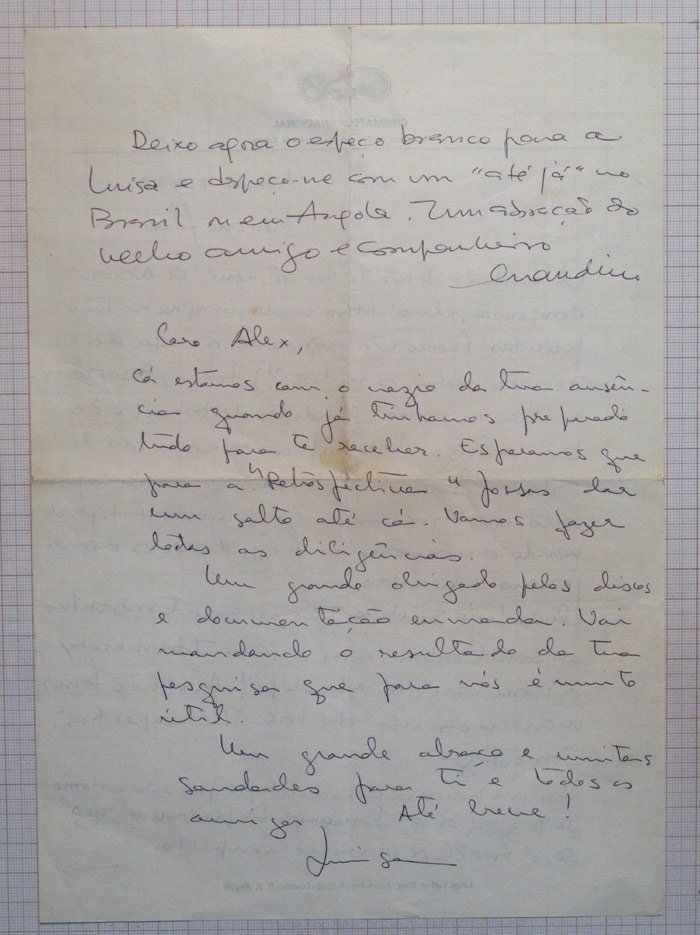 Deixo agora o espaço branco para a
Luisa e despeço-me com um "até já" no
Brasil ou em Angola. Um abração do
velho amigo e companheiro
Caro Alex,
Cá estamos com o vazio da tua ausên-
cia quando já tínhamos preparado
tudo para te receber. Esperamos que
para a "Retrospectiva" possas dar
um salto até cá. Vamos fazer
todas as diligências.
Um grande obrigado pelos discos
e documentação enviada. Vai
mandando o resultado da tua
pesquisa que para nós é muito
útil.
Um grande abraço e muitas
saudades para ti e todos os
amigos. Até breve!
Luisa